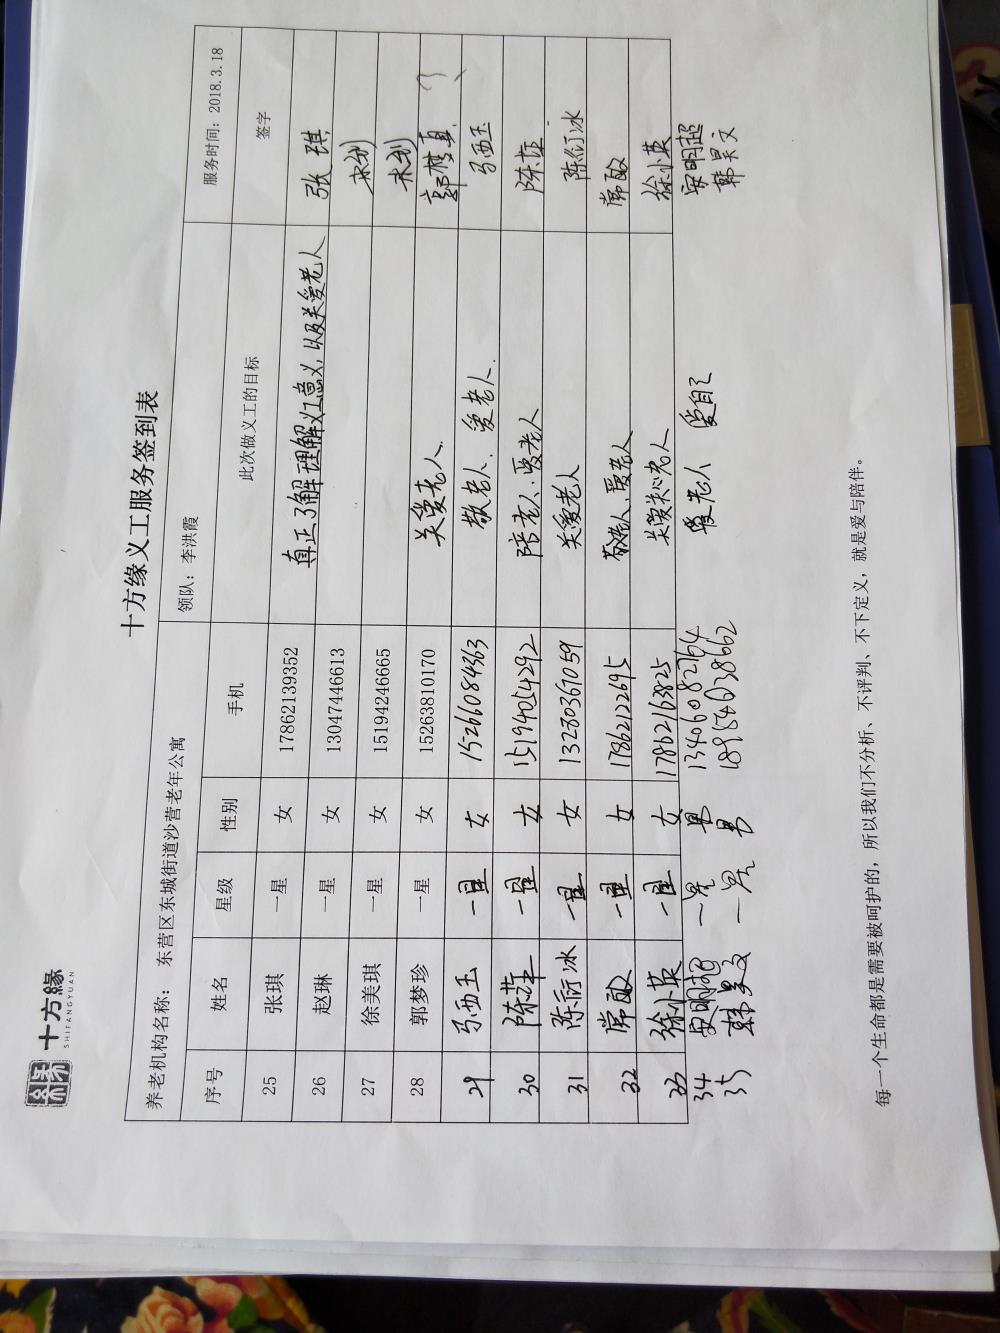 十方緣
SHIFANGYUAN
十方缘义工服务签到表
养老机构名称： 东营区东城街道沙营老年公寓 领队：李洪霞 服务时间：2018.3.18
序号 姓名 星级 性别 手机 此次做义工的目标 签字
25 张琪 一星 女 17862139352 真正了解理解义工意义，以及关爱老人 张琪
26 赵琳 一星 女 13047446613 未到
27 徐美琪 一星 女 15194246665 未到
28 郭梦珍 一星 女 15263810170 关爱老人.
29 马西玉 一星 女 15266084363 敬老人、爱老人. 马西玉
30 陈苹 一星 女 15194054292 陪老人、爱老人 陈苹
31 陈衍冰 一星 女 13280361059 关爱老人 陈衍冰
32 常敏 一星 女 17862122695 敬老人、爱老人 常敏
33 徐小英 一星 女 17862163825 关爱关心老人 徐小英
34 安明超 一星 男 13406082764 爱老人 爱自己 安明超
35 韩昊文 一星 男 18954038662 韩昊文
每一个生命都是需要被呵护的，所以我们不分析、不评判、不下定义，就是爱与陪伴。